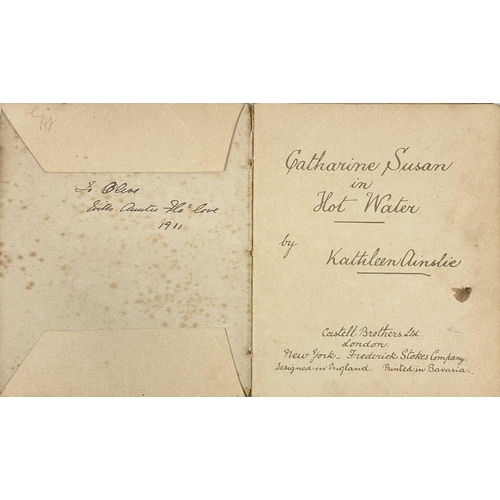 To Olive
With Auntie Flo's love
1911
Catharine Susan
in
Hot Water
by
Kathleen Ainslie
Castell Brothers Ltd.
London.
New York - Frederick Stokes Company.
Designed in England. Printed in Bavaria.